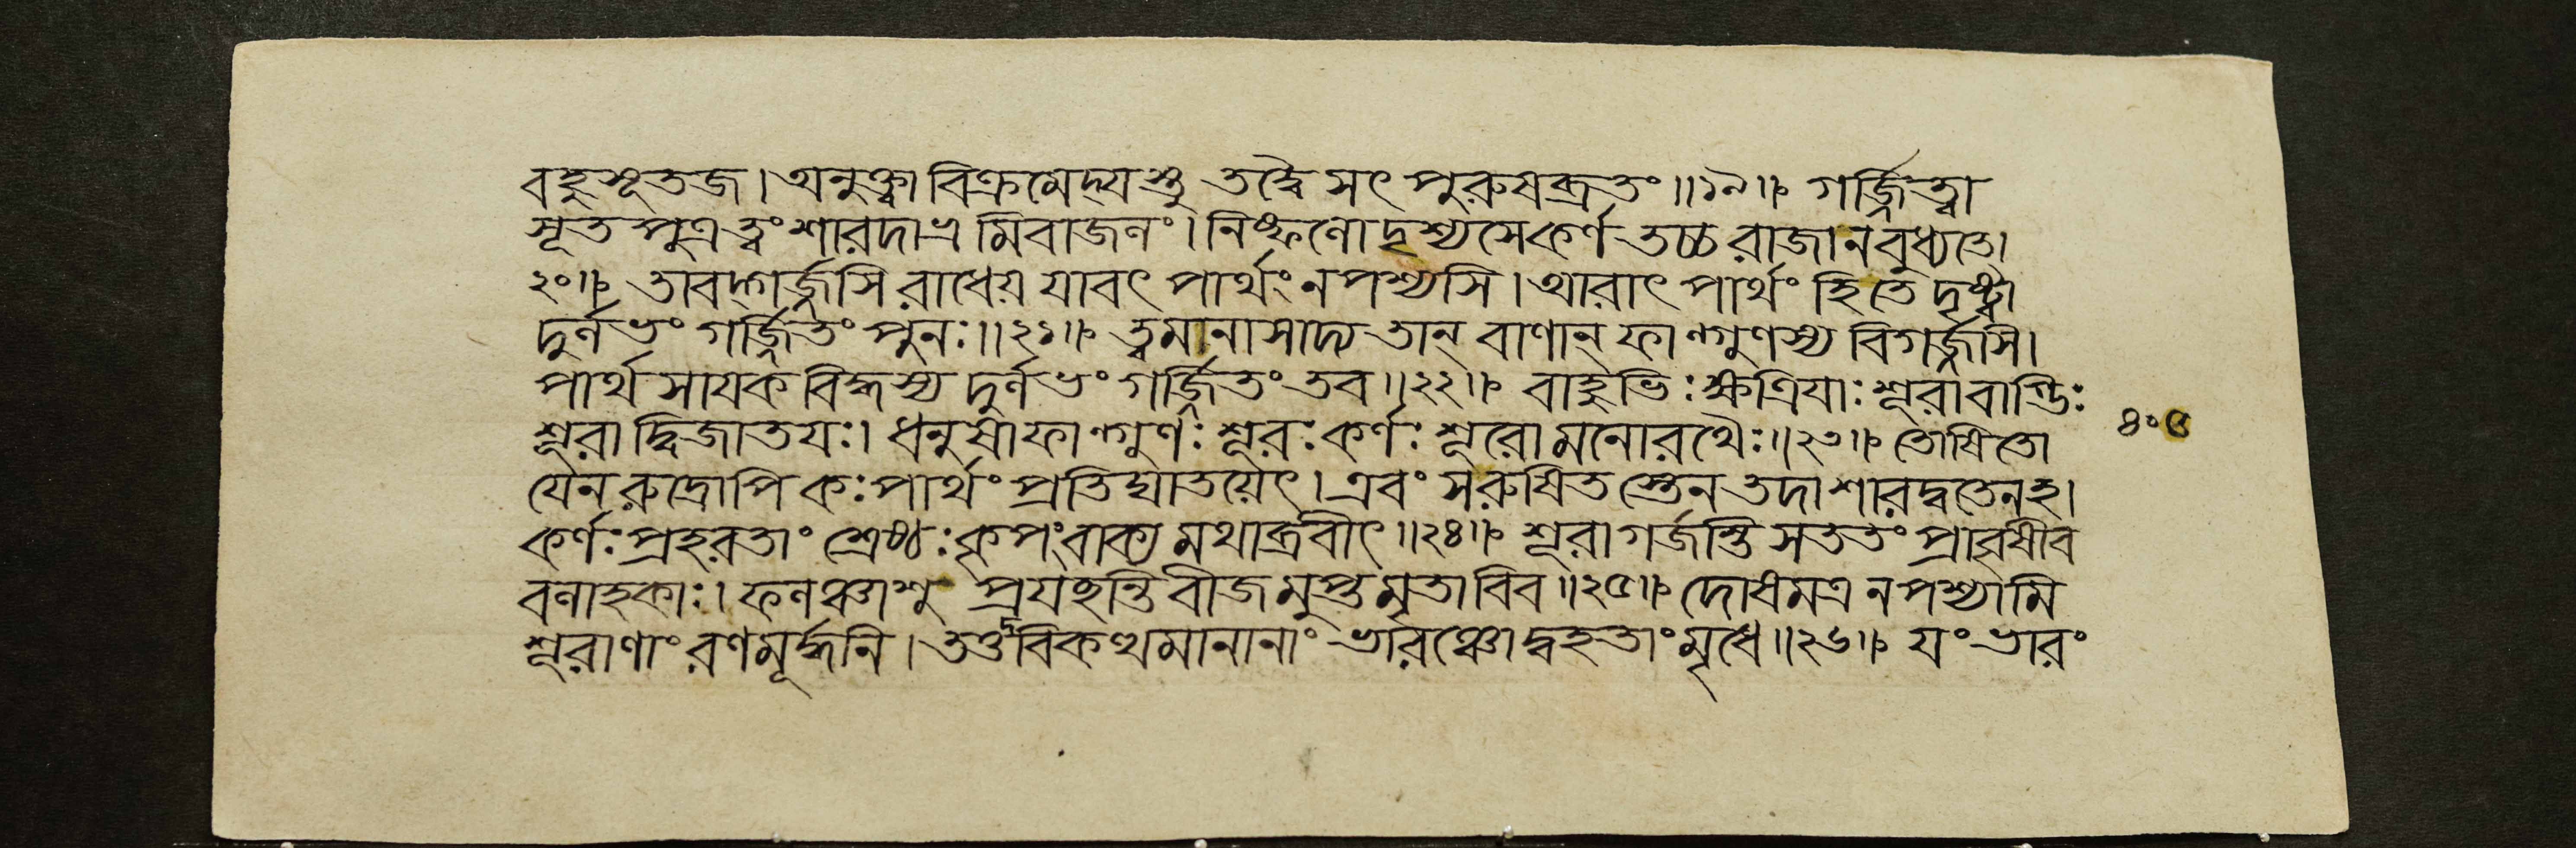 বহুশূতজ। অনুক্ত্বা বিক্রমেদ্যস্তু তদ্বৈ সৎ পুরুষব্রতং॥১৯॥ গর্জ্জিত্বা
সূত পুত্র ত্বং শারদাভ্র মিবাজলং। নিষ্ফলো দৃশ্যসে কর্ণ তচ্চ রাজা ন বুধ্যতে॥
২০॥ তাবদ্গর্জ্জসি রাধেয় যাবৎ পার্থং ন পশ্যসি। আরাৎ পার্থং হি তে দৃষ্ট্বা
দুর্লভং গর্জ্জিতং পুনঃ॥২১॥ ত্বমানাসাদ্য তান্ বাণান্ ফাল্গুণস্য বিগর্জ্জসি।
পার্থ সায়ক বিদ্ধস্য দুর্লভং গর্জ্জিতং তব॥২২॥ বাহুভিঃ ক্ষত্রিয়াঃ শূরা বাগ্ভিঃ
শূরা দ্বিজাতয়ঃ। ধনুষা ফাল্গুণঃ শূরঃ কর্ণঃ শূরো মনোরথৈঃ॥২৩॥ তোষিতো
৪০৫
যেন রুদ্রোপি কঃ পার্থং প্রতিঘাতয়েৎ। এবং সরুষিত স্তেন তদা শারদ্বতেন হ।
কর্ণঃ প্রহরতাং শ্রেষ্ঠঃ কৃপং বাক্য মথাব্রবীৎ॥২৪॥ শূরা গর্জন্তি সততং প্রাবৃষীব
বলাহকাঃ। ফলঞ্চাশু প্রযচ্ছন্তি বীজমুপ্তমৃতাবিব॥২৫॥ দোষমত্র ন পশ্যামি
শূরাণাং রণমূর্দ্ধনি। তত্তদ্বিকত্থমানানাং ভারঞ্চোদ্বহতাং মৃধে॥২৬॥ যং ভারং